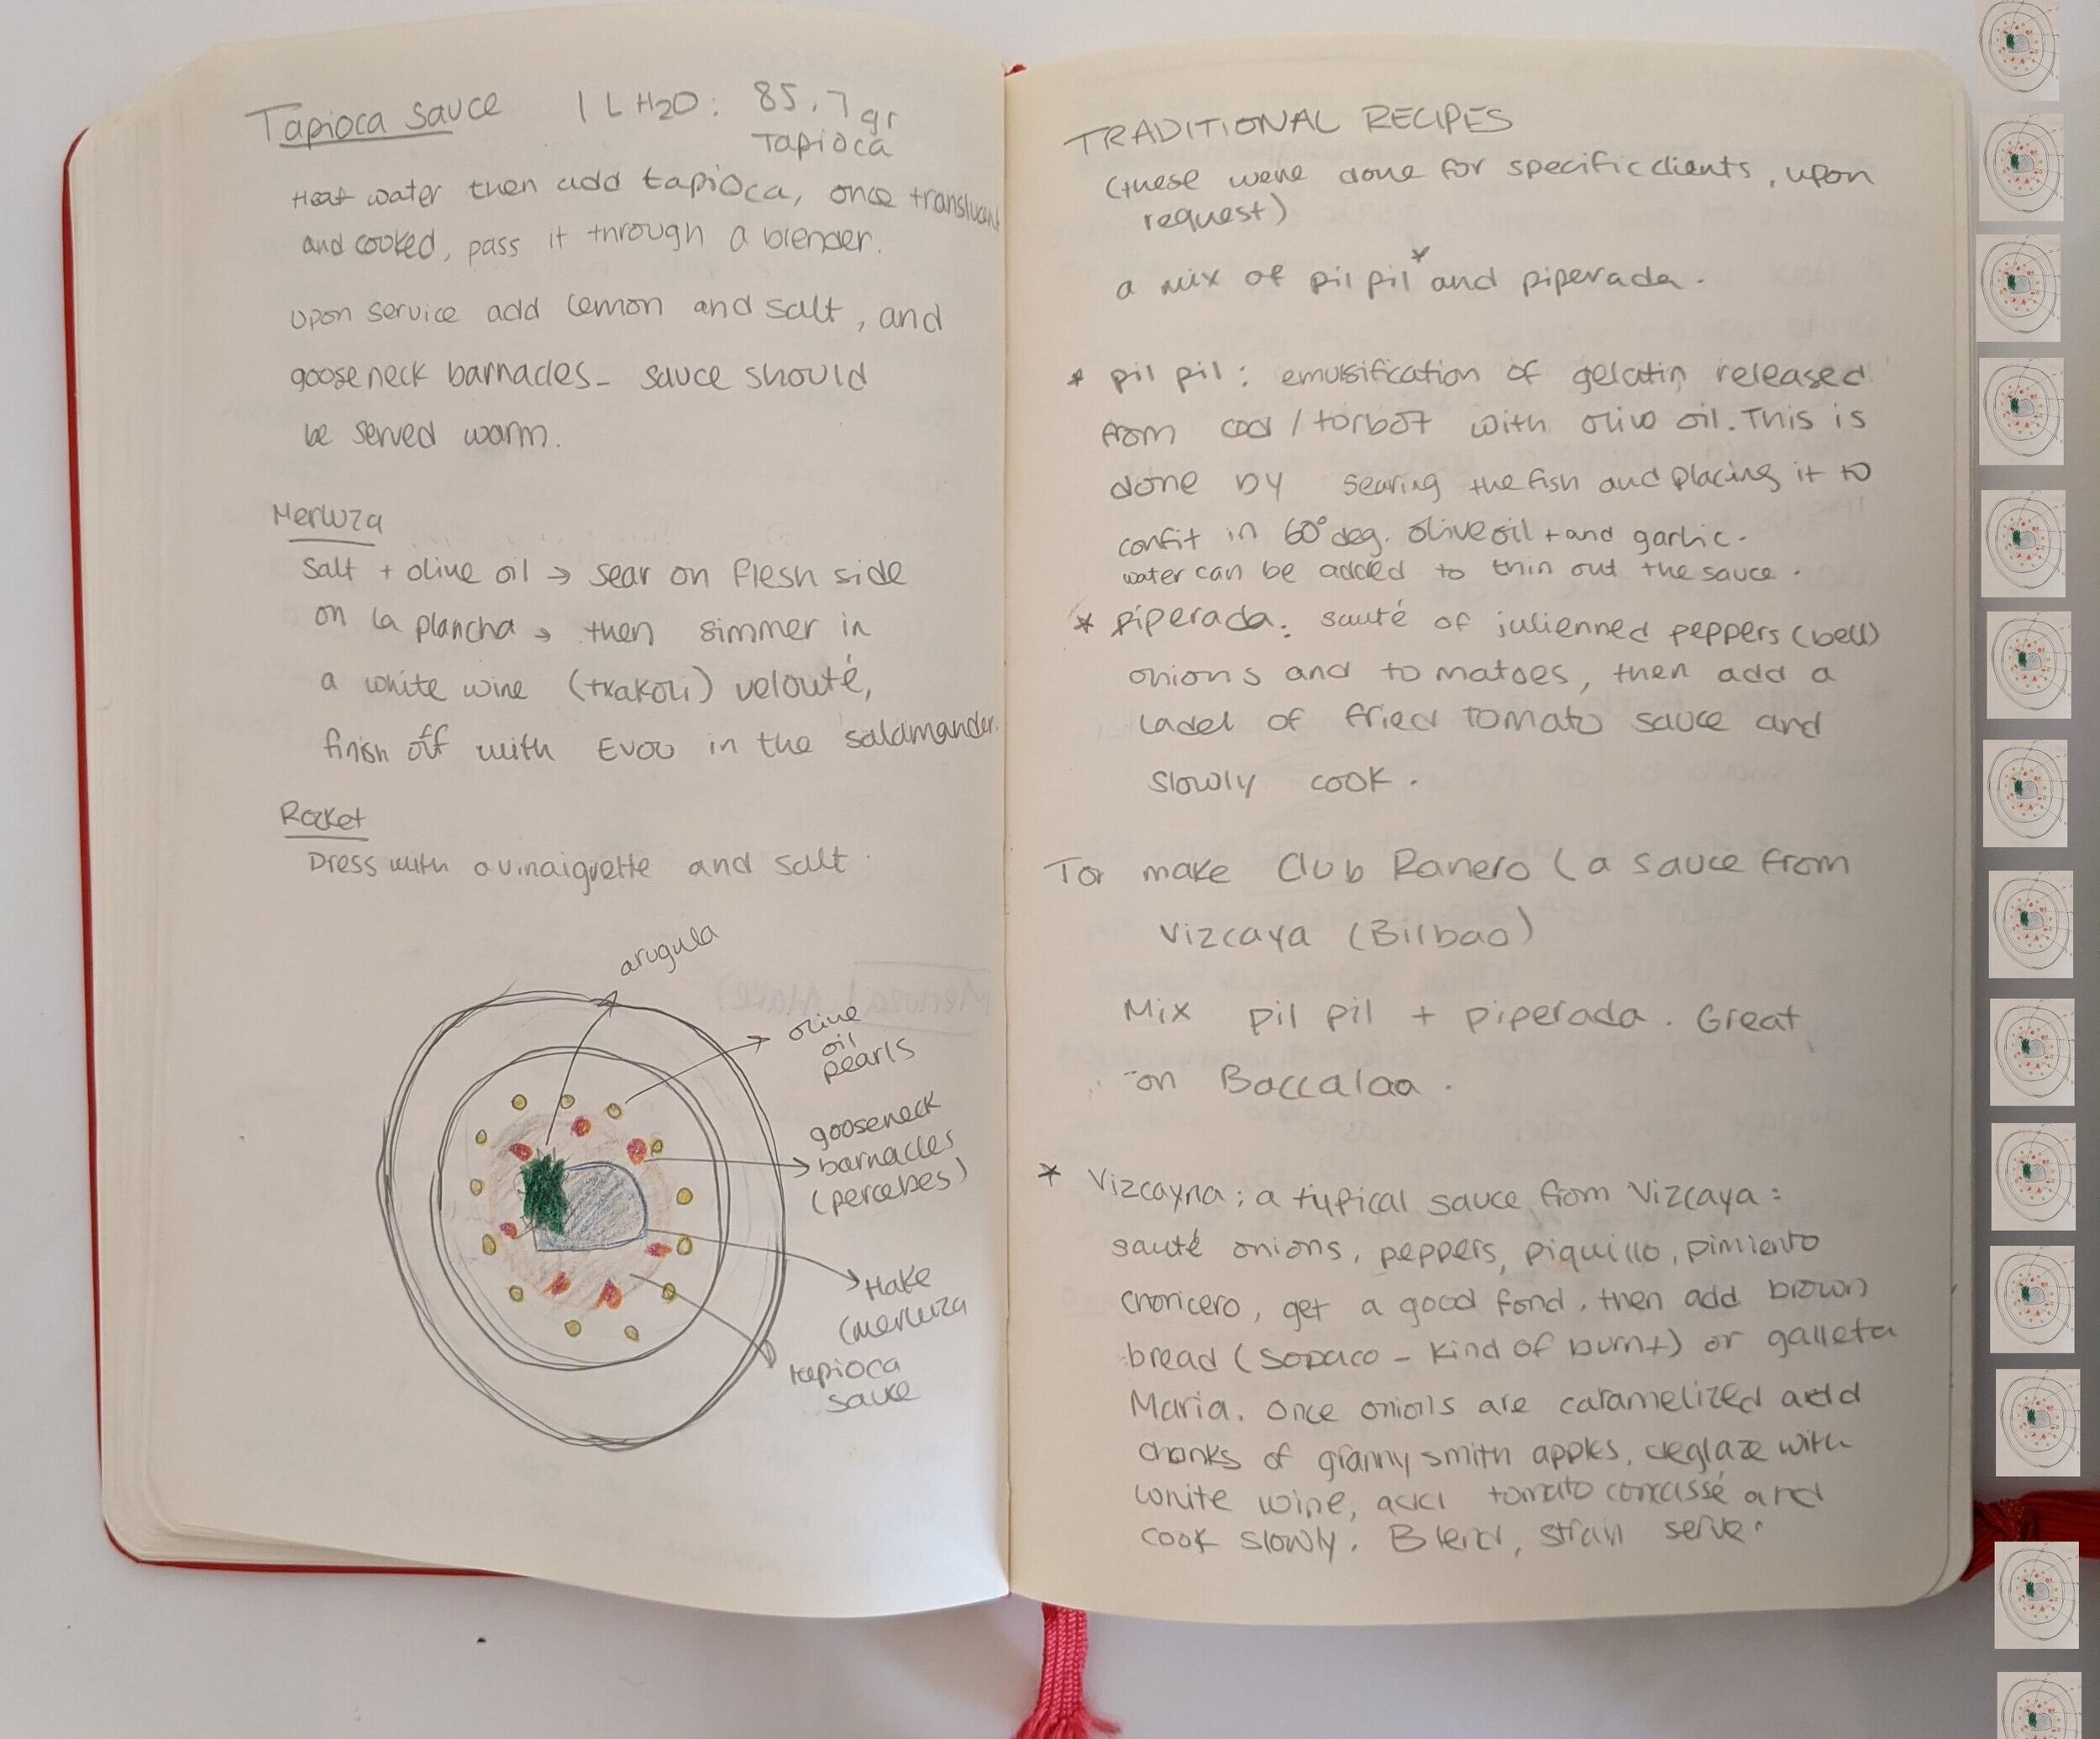 Tapioca sauce 1 L H2O: 85.7 gr
Tapioca
Heat water then add tapioca, once transluant
and cooked, pass it through a blender.
upon service add lemon and salt, and
gooseneck barnacles - sauce should
be served warm.
Merluza
salt + olive oil → sear on flesh side
on la plancha → then simmer in
a white wine (txakoli) velouté,
finish off with EVOO in the salamander.
Rocket
Dress with a vinaigrette and salt.
arugula
olive
oil
pearls
gooseneck
barnacles
(percebes)
Hake
(merluza
tapioca
sauce
TRADITIONAL RECIPES
(these were done for specific clients, upon
request)
a mix of pil pil* and piperada.
* pil pil: emulsification of gelatin released
from cod / torbot with olive oil. This is
done by searing the fish and placing it to
confit in 60° deg. olive oil + and garlic.
water can be added to thin out the sauce.
* piperada: sauté of julienned peppers (bell)
onions and tomatoes, then add a
ladel of fried tomato sauce and
slowly cook.
To make Club Ranero (a sauce from
Vizcaya (Bilbao)
Mix pil pil + piperada. Great
on Baccalaa.
* Vizcayna: a typical sauce from Vizcaya:
sauté onions, peppers, piquillo, pimiento
choricero, get a good fond, then add brown
bread (sopaco - kind of burnt) or galleta
Maria. Once onions are caramelized add
chonks of granny smith apples, deglaze with
white wine, add tomato concassé and
cook slowly. Blend, strain serve.